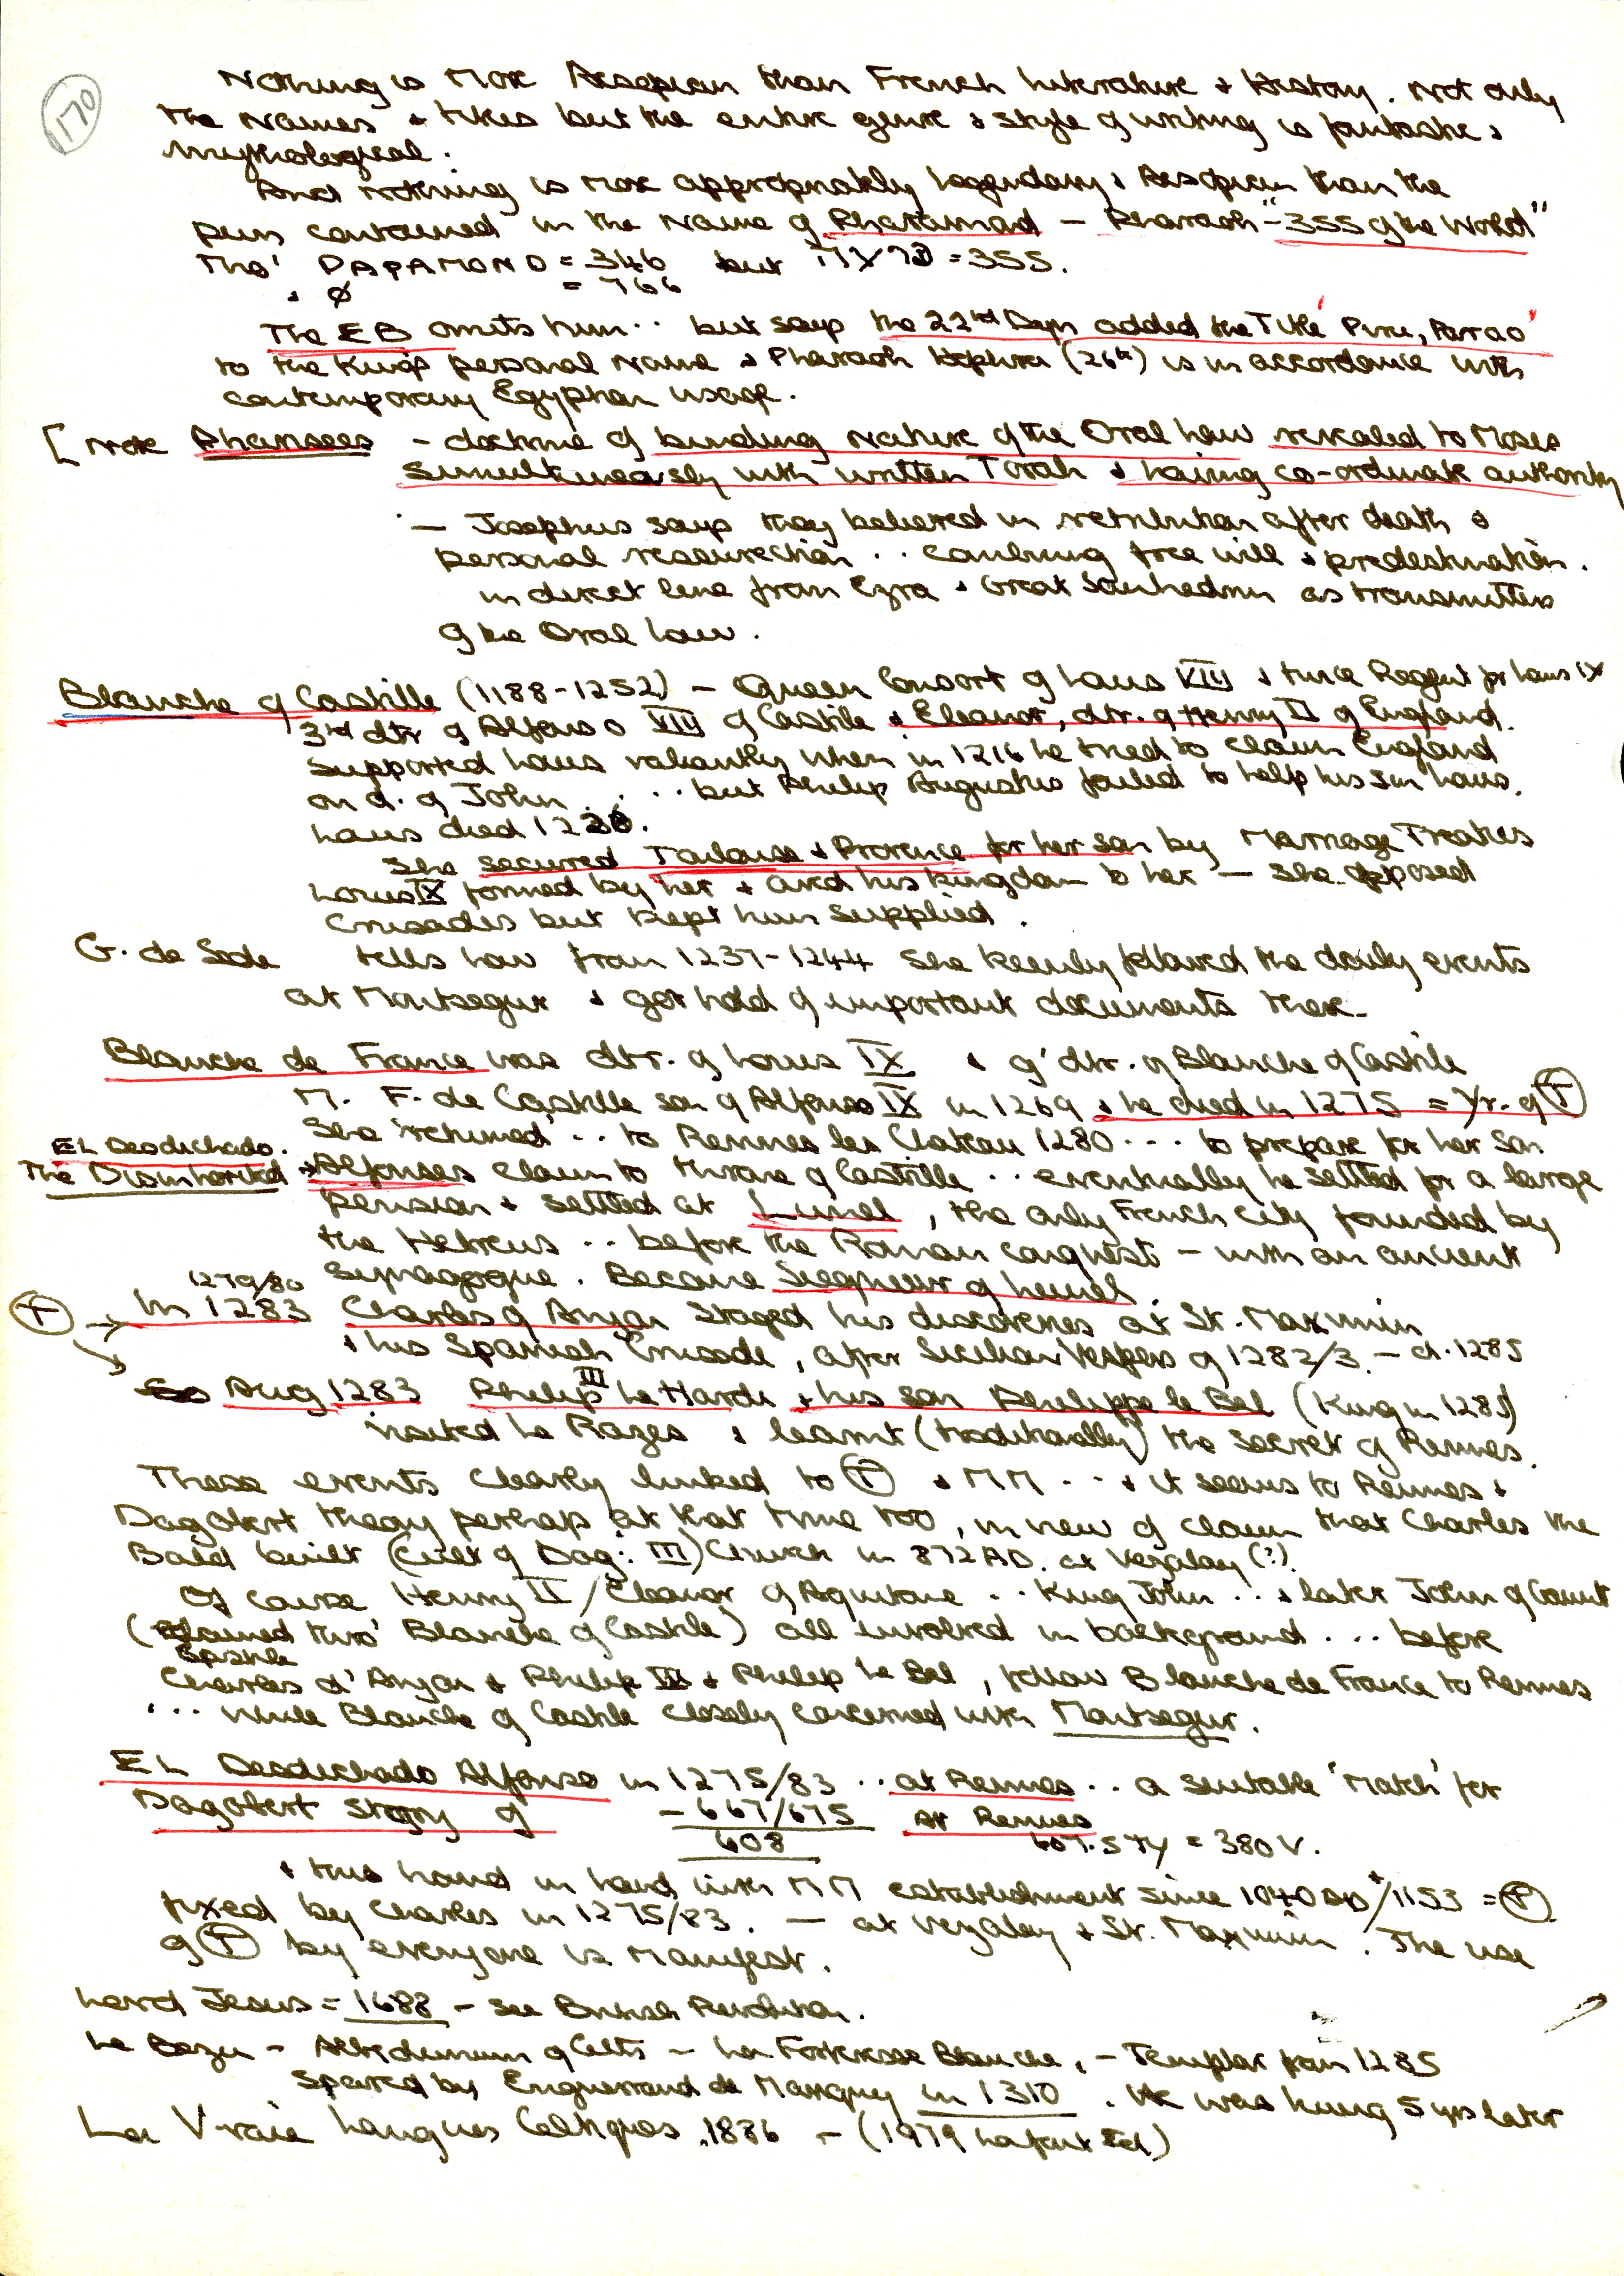 170
Nothing is More Aesopian than French Literature & History. Not only
the Names & titles but the entire genre & style of writing is fantastic &
mythological.
And nothing is more appropriately legendary & Aesopian than the
puns contained in the Name of Pharamond — Pharaoh - "355 of the World"
Tho' = 346 but = 355.
& Ø = 766
The EB omits him .. but says the 22nd Dyn added the Title 'Pire, Parrao'
to the King's personal Name & Pharaoh Hophra (26th) is in accordance with
contemporary Egyptian usage.
[ Note Pharisees - doctrine of binding nature of the Oral Law revealed to Moses
simultaneously with written Torah & having co-ordinate authority
— Josephus says they believed in retribution after death &
personal resurrection .. combining free will & predestination.
in direct line from Ezra & Great Sanhedrin as transmitters
of the Oral Law.
Blanche of Castille (1188-1252) — Queen Consort of Louis VIII & twice Regent for Louis IX
3rd dtr of Alfonso VIII of Castile & Eleanor, dtr. of Henry II of England.
Supported Louis valiantly when in 1216 he tried to claim England
on d. of John .... but Philip Augustus failed to help his son Louis.
Louis died 1226.
She secured Toulouse & Provence for her son by Marriage Treaties
Louis IX formed by her & owed his kingdom to her — she opposed
Crusades but kept him supplied.
G. de Sede tells how from 1237-1244 she keenly followed the daily events
at Montsegur & got hold of important documents there.
Blanche de France was dtr. of Louis IX & g'dtr. of Blanche of Castile
M. F. de Castille son of Alfonso IX in 1269 & he died in 1275 = Yr. of T
She 'returned' .. to Rennes les Chateau 1280 ... to prepare for her son
EL Desdichado.
The Disinherited → Alfonses claim to throne of Castille .. eventually he settled for a large
pension & settled at Lunel, the only French city founded by
the Hebrews .. before the Roman conquest — with an ancient
synagogue. Became Seigneur of Lunel.
1279/80
T → In 1283 Charles of Anjou staged his discoveries at St. Maximin
& his Spanish Crusade, after Sicilian Vespers of 1282/3. — d. 1285
Aug 1283 Philip III Le Hardi & his son Philippe le Bel (King in 1285)
visited Le Razes & learnt (traditionally) the secret of Rennes.
These events clearly linked to T & MM .. & it seems to Rennes &
Dagobert theory perhaps at that time too, in view of claim that Charles the
Bald built (cult of Dag: III) Church in 872 AD. at Vezelay (?)
Of course Henry II / Eleanor of Aquitaine .. King John .. & later John of Gaunt
(claimed thro' Blanche of Castile) all involved in background ... before
Charles d'Anjou & Philip III & Philip Le Bel, follow Blanche de France to Rennes
... while Blanche of Castile closely concerned with Montsegur.
EL Desdichado Alfonso in 1275/83 .. at Rennes .. a suitable 'Match' for
Dagobert story of - 667/675 at Rennes
608 607.5 Ty = 380 V.
& this hand in hand with MM establishment since 1040 AD +/1153 = T
fixed by Charles in 1275/83. — at Vezelay & St. Maximin. The use
of T by everyone is Manifest.
Lord Jesus = 1688 — see British Revolution.
Le Bezu - of Celts — La Forteresse Blanche, — Templar from 1285
Spared by Enguerrand de Marigny in 1310. He was hung 5 yrs later
La Vraie Langues Celtiques, 1886 — (1979 Ed)